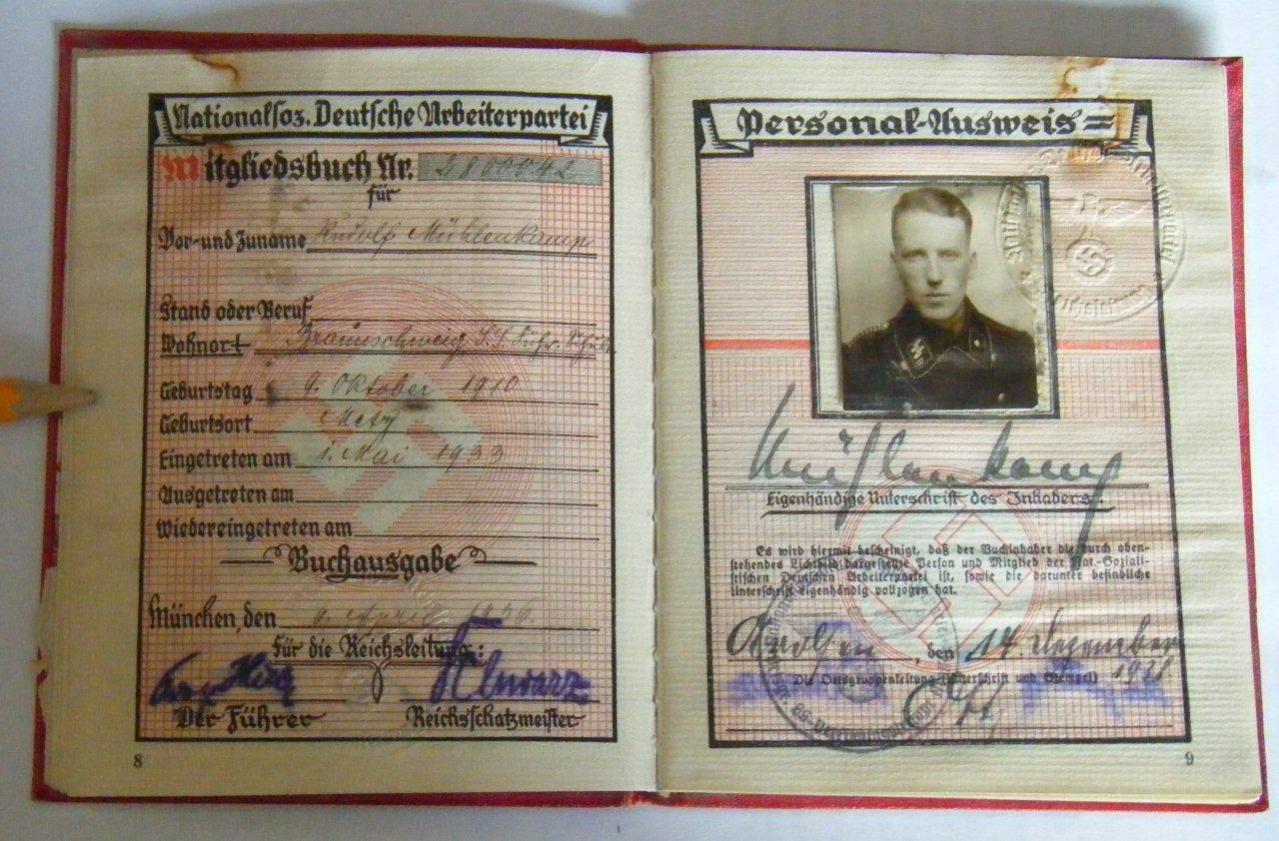 Nationalsoz. Deutsche Arbeiterpartei
Mitgliedsbuch Nr.
für
Vor- und Zuname Rudolf Mühlenkamp
Stand oder Beruf
Wohnort Braunschweig
Geburtstag 9. Oktober 1910
Geburtsort Metz
Eingetreten am 1. Mai 1933
Ausgetreten am
Wiedereingetreten am
Buchausgabe
München, den April 1936
Für die Reichsleitung:
Schwarz
Der Führer Reichsschatzmeister
8
Personal-Ausweis=
Mühlenkamp
Eigenhändige Unterschrift des Inhabers.
Es wird hiermit bescheinigt, daß der Buchinhaber die durch oben-
stehendes Lichtbild dargestellte Person und Mitglied der Nat.-Soziali-
stischen Deutschen Arbeiterpartei ist, sowie die darunter befindliche
Unterschrift eigenhändig vollzogen hat.
Arolsen, den 14. Dezember
Die Ortsgruppenleitung (Unterschrift und Stempel)
9